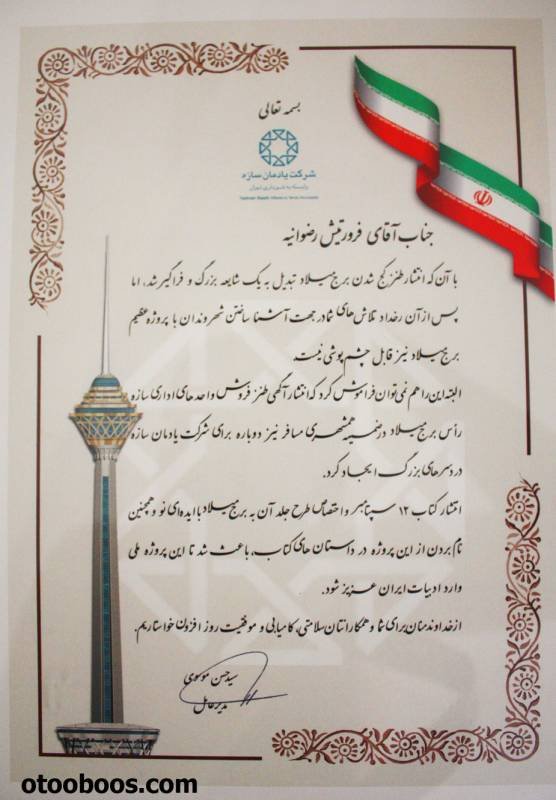 بسمه تعالی
شرکت یادمان سازه
وابسته به شهرداری تهران
جناب آقای فرورتیش رضوانیه
با آن که انتشار طنز کج شدن برج میلاد تبدیل به یک شایعه بزرگ و فراگیر شد، اما
پس از آن رخداد تلاش های شما در جهت آشنا ساختن شهروندان با پروژه عظیم
برج میلاد نیز قابل چشم پوشی نیست
البته این را هم نمی توان فراموش کرد که انتشار آگهی طنز فروش واحدهای اداری سازه
رأس برج میلاد در ضمیمه همشهری مسافر نیز دوباره برای شرکت یادمان سازه
دردسرهای بزرگ ایجاد کرد.
انتشار کتاب ۱۲ سپتامبر و اختصاص طرح جلد آن به برج میلاد با ایده ای نو و همچنین
نام بردن از این پروژه در داستان های کتاب، باعث شد تا این پروژه ملی
وارد ادبیات ایران عزیز شود.
از خداوند منان برای شما و همکارانتان سلامتی، کامیابی و موفقیت روز افزون خواستاریم.
سید حسن موسوی
مدیرعامل
otooboos.com